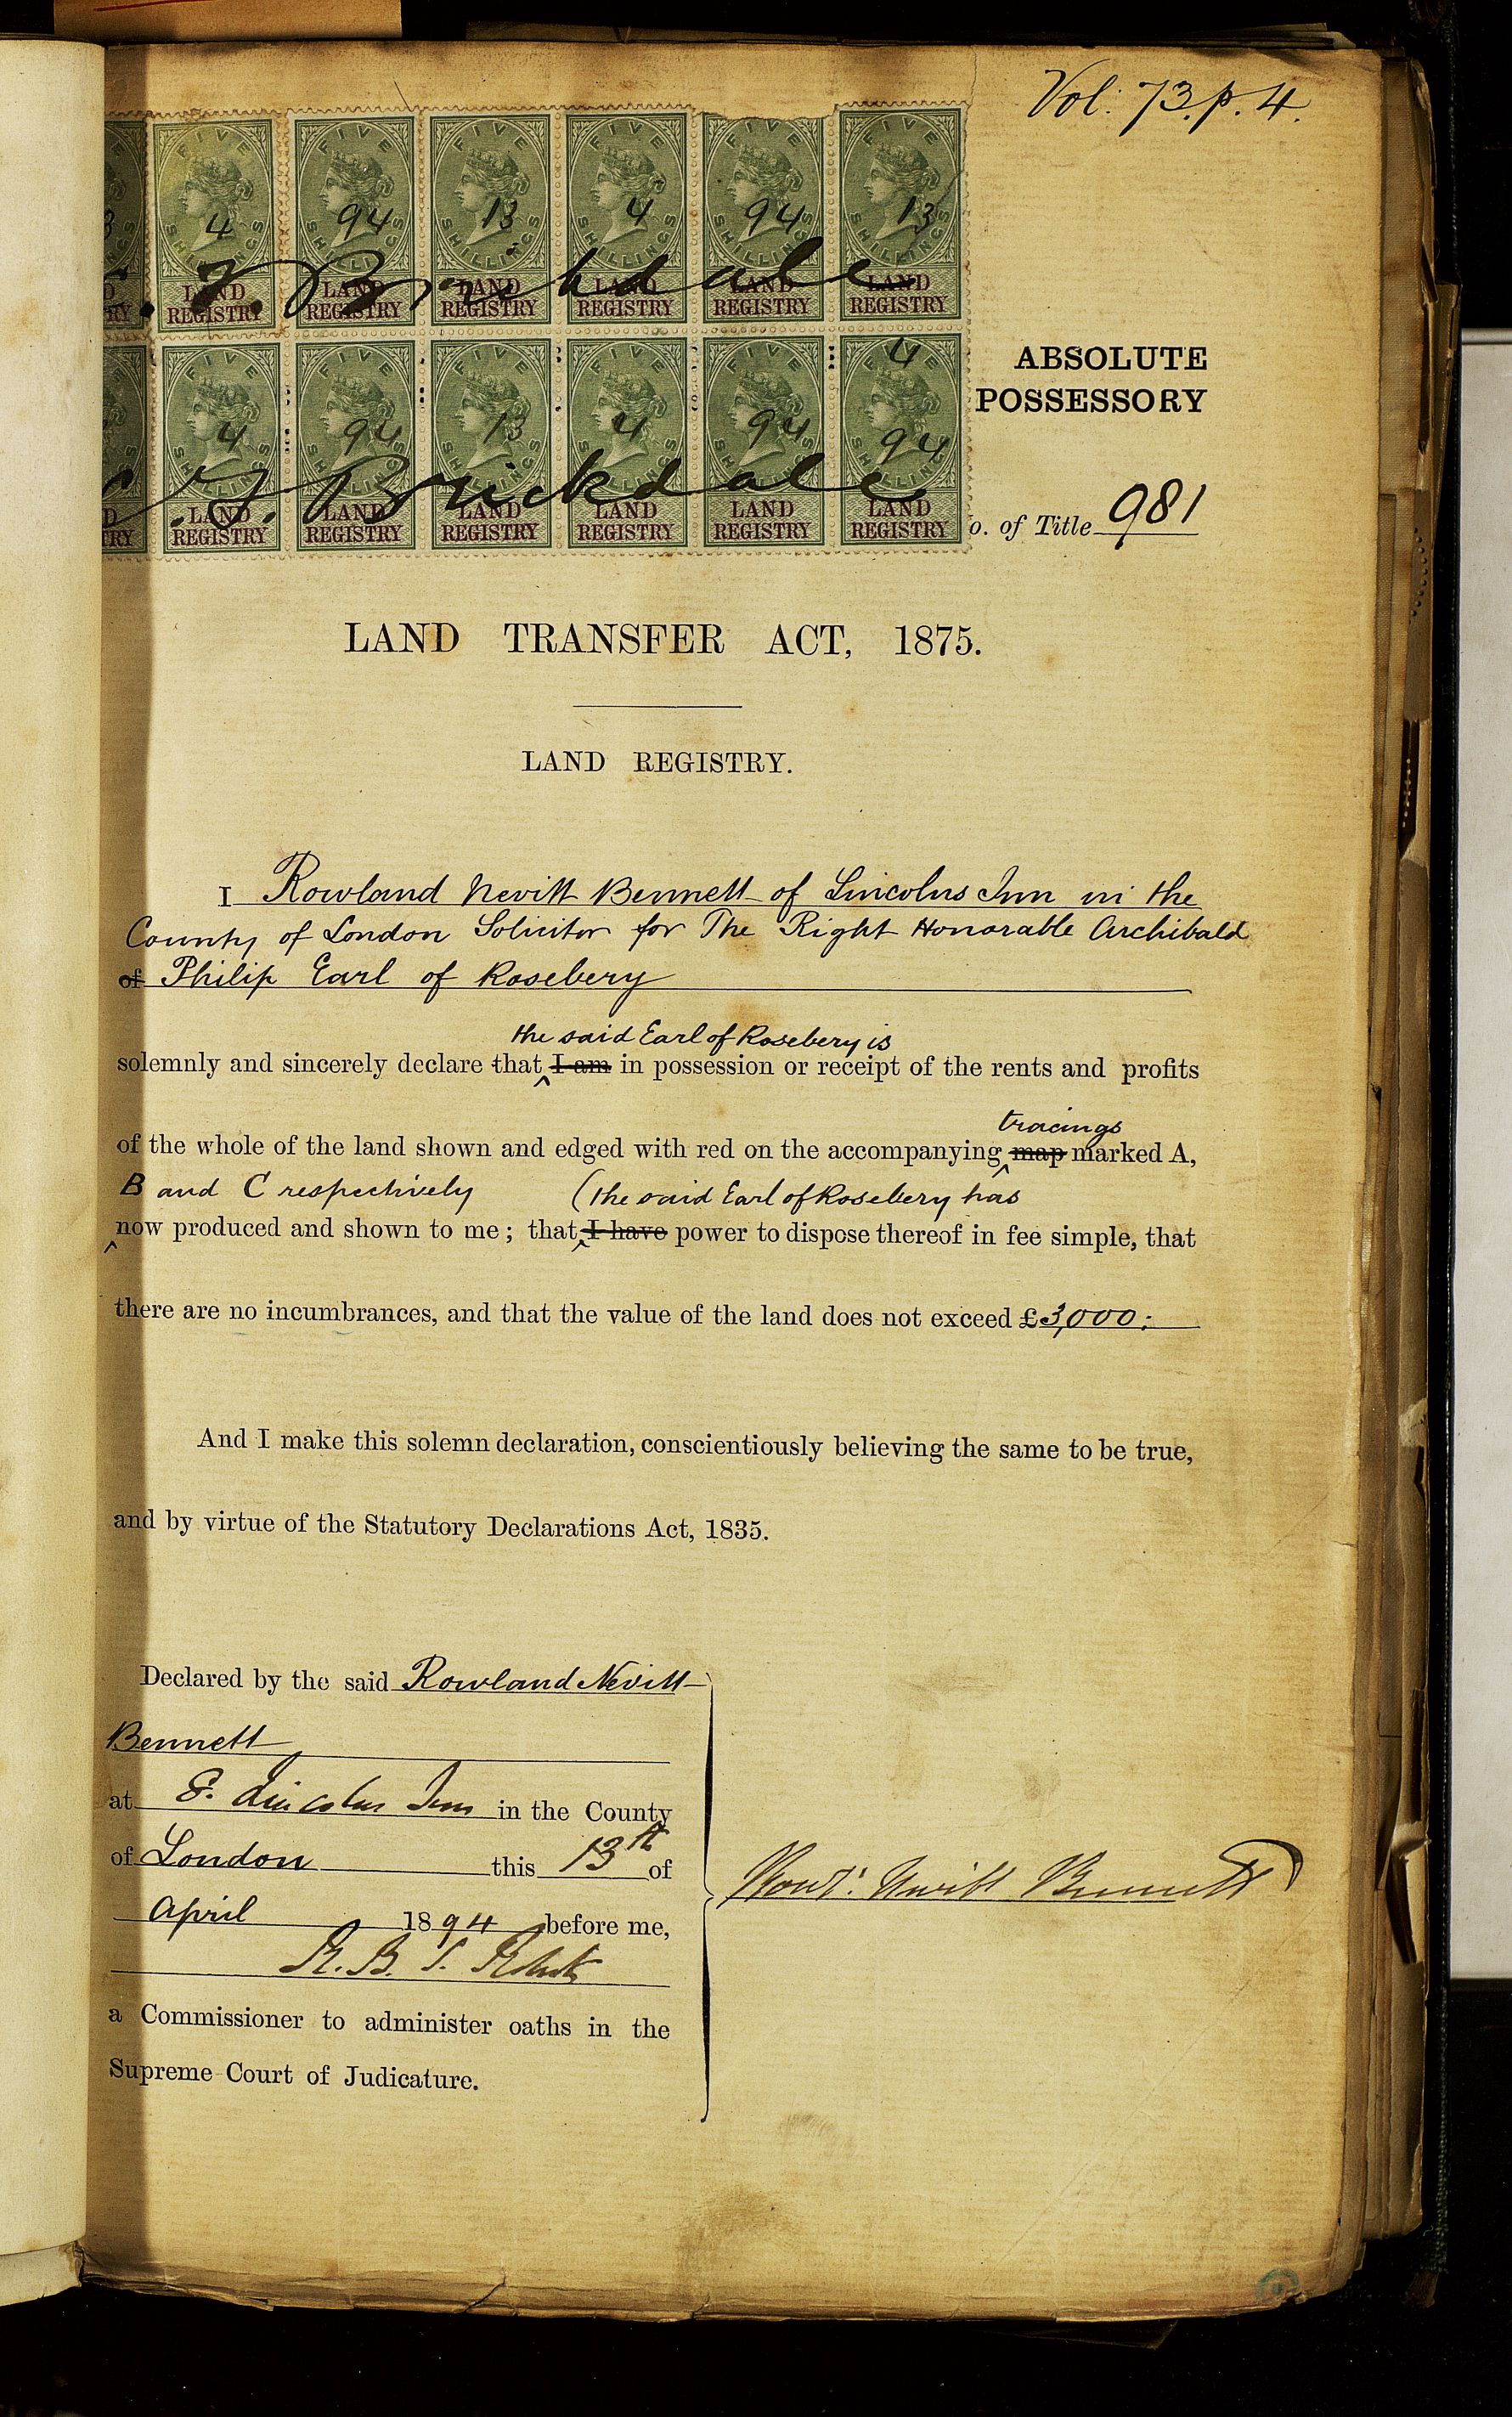 Vol. 73. p. 4.
FIVE SHILLINGS FIVE SHILLINGS FIVE SHILLINGS FIVE SHILLINGS FIVE SHILLINGS FIVE SHILLINGS
4 94 13 4 94 13
Brickdale
LAND REGISTRY LAND REGISTRY LAND REGISTRY LAND REGISTRY LAND REGISTRY LAND REGISTRY
FIVE SHILLINGS FIVE SHILLINGS FIVE SHILLINGS FIVE SHILLINGS FIVE SHILLINGS FIVE SHILLINGS
4 94 13 4 94 4 94
Brickdale
LAND REGISTRY LAND REGISTRY LAND REGISTRY LAND REGISTRY LAND REGISTRY LAND REGISTRY
ABSOLUTE
POSSESSORY
o. of Title 981
LAND TRANSFER ACT, 1875.
LAND REGISTRY.
I Rowland Nevitt Bennett of Lincolns Inn in the
County of London Solicitor for The Right Honorable Archibald
of Philip Earl of Rosebery
the said Earl of Rosebery is
solemnly and sincerely declare that I am in possession or receipt of the rents and profits
tracings
of the whole of the land shown and edged with red on the accompanying map marked A,
B and C respectively (the said Earl of Rosebery has
now produced and shown to me; that I have power to dispose thereof in fee simple, that
there are no incumbrances, and that the value of the land does not exceed £3,000:
And I make this solemn declaration, conscientiously believing the same to be true,
and by virtue of the Statutory Declarations Act, 1835.
Declared by the said Rowland Nevitt
Bennett
at 8. Lincolns Inn in the County
of London this 13th of
April 1894 before me,
R. B. S.
a Commissioner to administer oaths in the
Supreme Court of Judicature.
Rowd. Nevitt Bennett